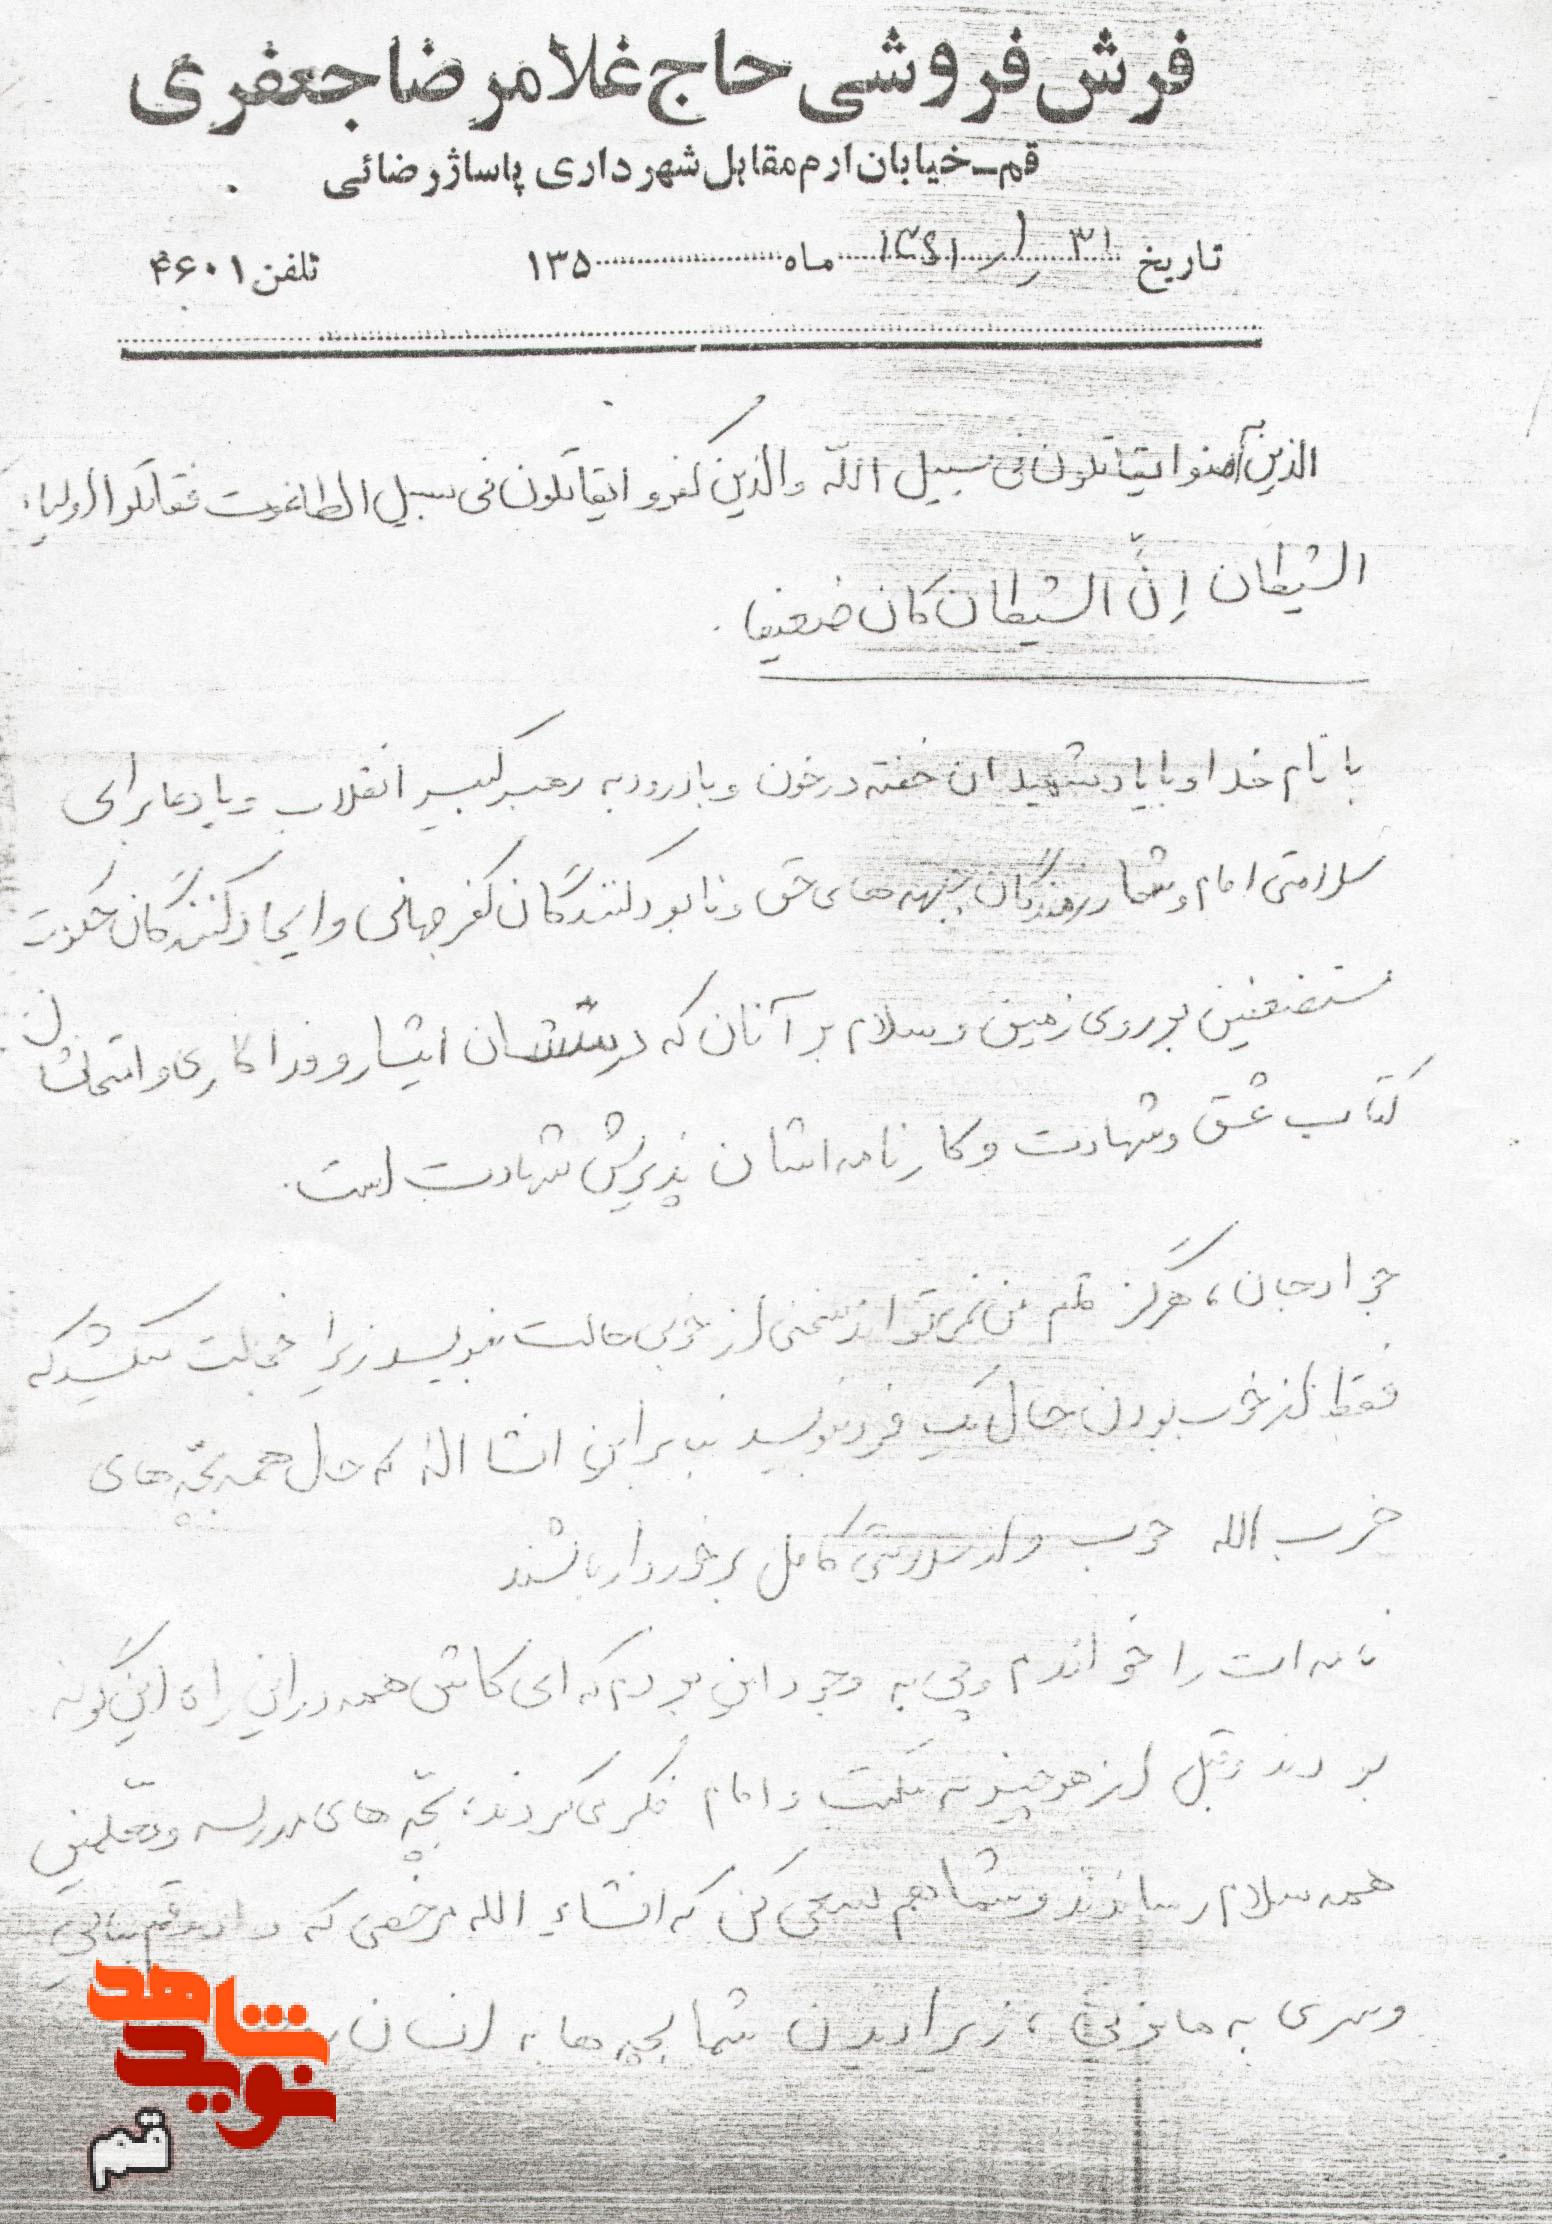 فرش فروشی حاج غلامرضا جعفری
قم ـ خیابان ارم مقابل شهرداری پاساژ رضائی
تاریخ ۳۱ / ۱ / ۱۳۶۱ ماه ۱۳۵ تلفن ۴۶۰۱
الذین آمنوا یقاتلون فی سبیل اللّه والذین کفروا یقاتلون فی سبیل الطاغوت فقاتلوا اولیاء
الشیطان اِنَّ الشیطان کان ضعیفا.
با نام خدا و با یاد شهیدان خفته در خون و با درود به رهبر کبیر انقلاب و با دعا برای
سلامتی امام و شما رزمندگان جبهه های حق و نابود کنندگان کفر جهانی و ایجاد کنندگان حکومت
مستضعفین بر روی زمین و سلام بر آنان که درسشان ایثار و فداکاری و امتحانشان
کتاب عشق و شهادت و کارنامه اشان پذیرش شهادت است.
جوادجان، هرگز قلم من نمی تواند سخنی از خوبی حالت بنویسد زیرا خجالت میکشد که
فقط از خوب بودن حال یک فرد بنویسد بنابراین انشا الله که حال همه بچّه های
حزب الله خوب و از سلامتی کامل برخوردار باشند
نامه ات را خواندم و پی به وجود این بردم که ای کاش همه در این راه این گونه
بودند و قبل از هر چیز به مکتب و امام فکر می کردند، بچّه های مدرسه و معلمین
همه سلام رساندند و شما هم سعی کن که انشاء الله مرخصی که دادند قم بیائی
و سری به ما بزنی، زیرا دیدن شما بچه ها به انسان
شاهد
نوید
قم